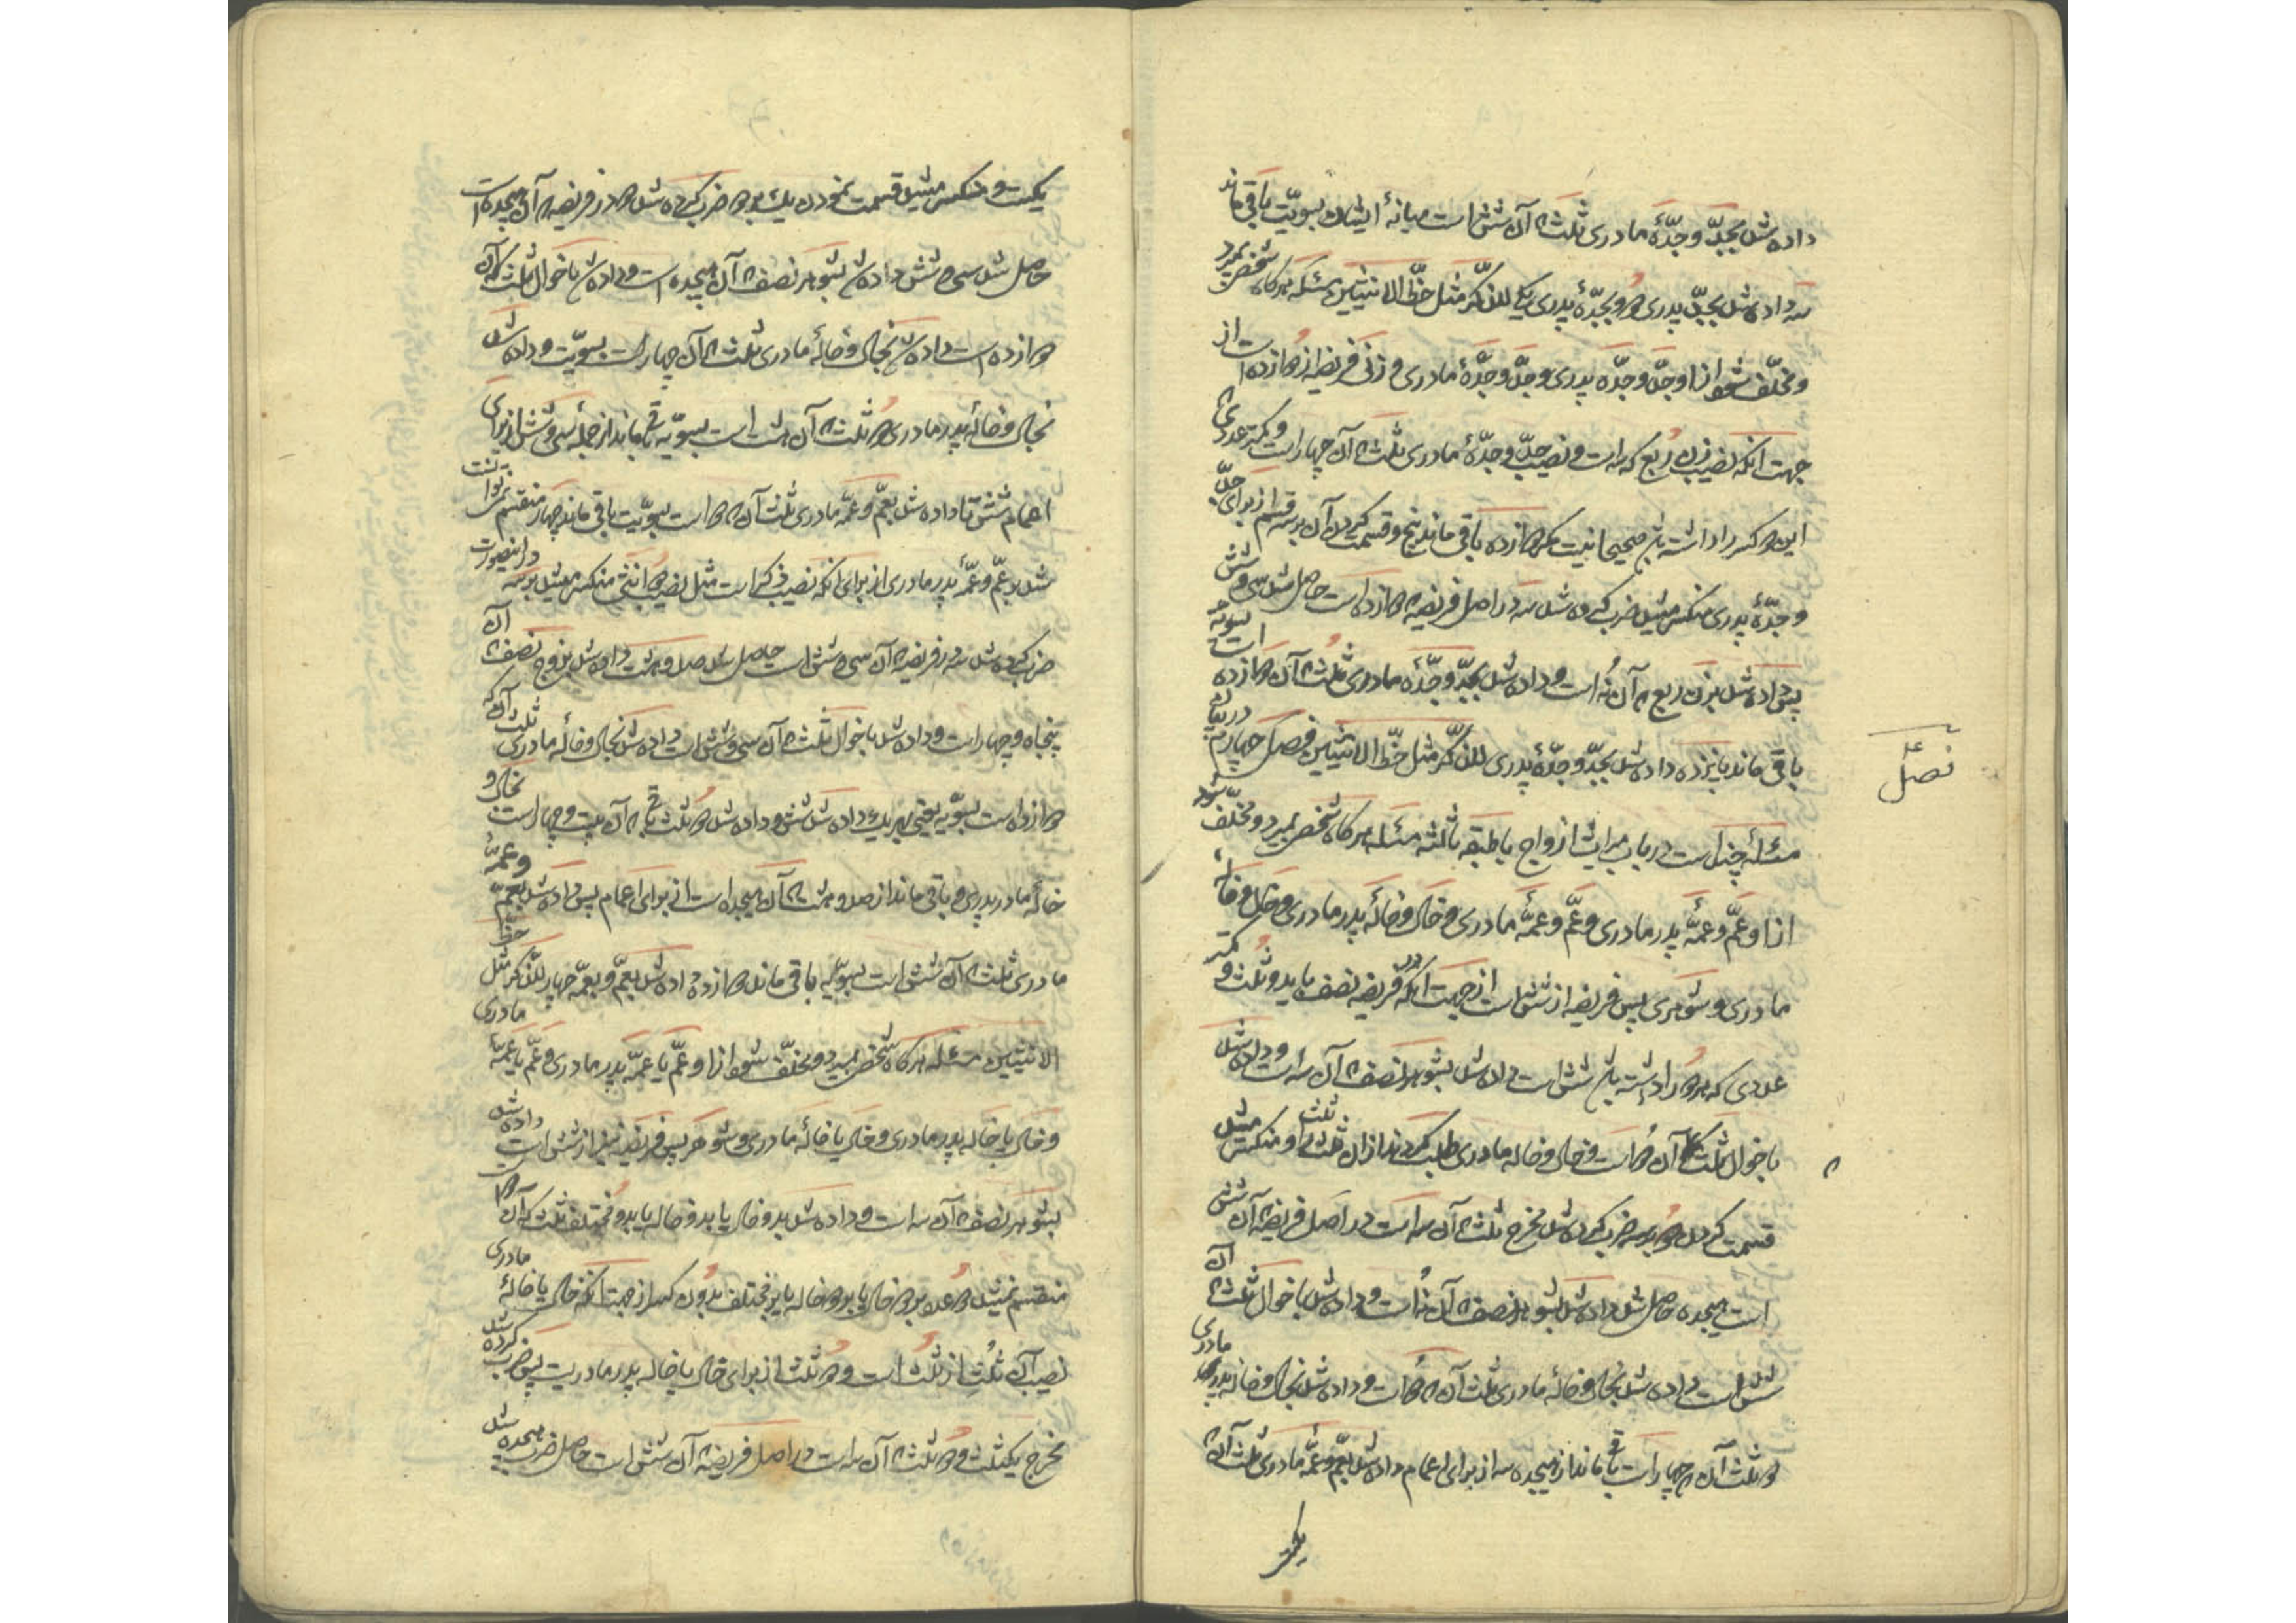 داده شد بجدّ و جدّهٔ مادری ثلث که آن شش است میانهٔ ایشان بسویّت باقی ماند
سه داده شد بجدّ پدری دو و بجدّهٔ پدری یکی للذّکر مثل حظّ الانثیین مسئله هرکاه شخصی بمیرد
و مخلّف شود از او جدّ و جدّه پدری و جدّ و جدّهٔ مادری و زنی فریضه از دوازده است از
جهت انکه نصیب زن ربع که سه است و نصیب جدّ و جدّهٔ مادری ثلث که آن چهار است و کمتر عددی که
این دو کسر را داشته باشد صحیحا نیست مکر دوازده باقی ماند پنج و قسمت کردن آن بر سه قسم از برای جدّ
و جدّهٔ پدری منکسر میشد ضرب کرده شد سه در اصل فریضه که دوازده است حاصل شد سی و شش
پس داده شد بزن ربع که آن نُه است و داده شد بجدّ و جدّه مادری ثلث که آن دوازده است بسویّه
باقی ماند پانزده داده شد بجدّ و جدّهٔ پدری للذّکر مثل حظّ الانثیین فصل چهارم در بیان
فصل
مسئلهٔ چند است در باب میراث ازواج با طبقه ثالثه مسئله هرکاه شخصی بمیرد و مخلّف شود
از او عمّ و عمّهٔ پدر مادری و عمّ و عمّه مادری و خال و خالهٔ پدر مادری و خال و خالهٔ
مادری و شوهری پس فریضه از شش است از جهت انکه در فریضه نصف باید و ثلث و کمتر
عددی که هر دو را داشته باشد شش است داده شد بشوهر نصف که آن سه است و داده شد
باخوال ثلث که آن دو است و خال و خاله مادری طلب کردند از آن ثلث ثلثی و منکسر میشد
قسمت کردن دو بر سه ضرب کرده شد مخرج ثلث که آن سه است در اصل فریضه که آن شش
است هیجده حاصل شد داده شد بشوهر نصف که آن نُه است و داده شد باخوال ثلث که آن
شش است داده شد بخال و خالهٔ مادری ثلث آن که دو است و داده شد بخال و خاله پدر مادری
دو ثلث آن که چهار است باقی ماند از هیجده سه از برای اعمام داده شد بعمّ و عمّه مادری ثلث آن که
یکیست و منکسر میشد قسمت نمودن یک بر دو ضرب کرده شد دو در فریضه که آن هیجده است
حاصل شد سی و شش داده شد بشوهر نصف که آن هیجده است و داده شد باخوال ثلث که آن
دوازده است داده شد بخال و خالهٔ مادری ثلث که آن چهار است بسویّت و داده شد
بخال و خالهٔ پدر مادری دو ثلث که آن هشت است بسویّه باقی ماند از جملهٔ سی و شش از برای
اعمام شش تا داده شد بعمّ و عمّه مادری ثلث آن که دو است بسویّت باقی ماند چهار منقسم نمیتوانست
شد بر عمّ و عمّهٔ پدر مادری از برای انکه نصیب ذکر است مثل نصیب دو انثی منکسر میشد بر سه در اینصورت
ضرب کرده شد سه در فریضه که آن سی و شش است حاصل شد صد و هشت داده شد بزوج نصف که آن
پنجاه و چهار است و داده شد باخوال ثلث که آن سی و شش است داده شد بخال و خالهٔ مادری ثلث آن که
دوازده است بسویّه یعنی بهر یک داده شد شش و داده شد دو ثلث باقی که آن بیست و چهار است بخال و
خالهٔ مادر پدری و باقی ماند از صد و هشت که آن هیجده است از برای اعمام پس داده شد بعمّ و عمّهٔ
مادری ثلث که آن شش است بسویّه باقی ماند دوازده داده شد بعمّ و بعمّه چهار للذّکر مثل حظّ
الانثیین مسئله هرکاه شخصی بمیرد و مخلّف شود از او عمّ یا عمّه پدر مادری و عمّ یا عمّهٔ مادری
و خال یا خاله پدر مادری و خال یا خالهٔ مادری و شوهر پس فریضه نیز از شش است داده شد
بشوهر نصف که آن سه است و داده شد بدو خال یا بدو خاله یا بدو مختلف ثلث که آن دو
منقسم نمیشد دو عدد بر دو خال یا بر دو خاله یا بر مختلف بدون کسر از جهت انکه خال یا خالهٔ مادری
نصیب آن ثلث از ثلث است و دو ثلث از برای خال یا خاله پدر مادریست پس ضرب کرده شد
مخرج یکثلث و دو ثلث که آن سه است در اصل فریضه که آن شش است حاصل ضرب هیجده شد